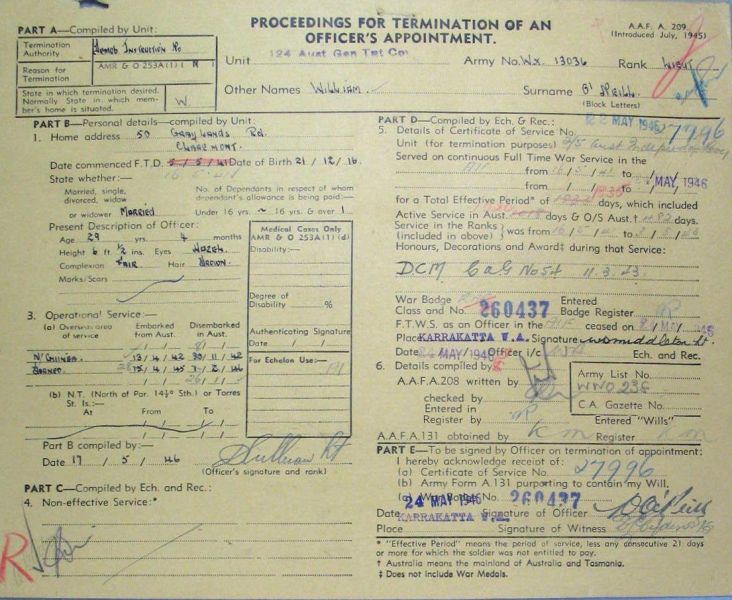 PROCEEDINGS FOR TERMINATION OF AN
OFFICER'S APPOINTMENT.
A.A.F. A. 209.
(Introduced July, 1945)
PART A—Compiled by Unit:
Termination Authority
AMR & O 253A(1)(
Reason for Termination
State in which termination desired. Normally State in which member's home is situated.
W.
Unit 124 Aust Gen Tpt Coy
Army No. Wx. 13036 Rank Lieut
Other Names William. Surname O'Neill.
(Block Letters)
PART B—Personal details—compiled by unit:
1. Home address 50 Graylands Rd.
Claremont.
Date commenced F.T.D. Date of Birth 21/12/16.
State whether:—
Married, single, divorced, widow or widower Married
No. of Dependants in respect of whom dependant's allowance is being paid:—
Under 16 yrs. ~ 16 yrs. & over 1
Present Description of Officer:
Age 29 yrs. 4 months
Height 6 ft. ½ ins. Eyes Hazel
Complexion Fair Hair Brown.
Marks/Scars
Medical Cases Only
AMR & O 253A(1)(d)
Disability:—
Degree of Disability %
Authenticating Signature
Date / /
For Echelon Use:—
3. Operational Service:—
(a) Overseas area of service
Embarked from Aust.
Disembarked in Aust.
N/Guinea 13/4/42 30/11/42
Borneo
(b) N.T. (North of Par. 14½° Sth.) or Torres St. Is.:—
At From To
Part B compiled by:—
Date 17/5/46
(Officer's signature and rank)
PART C—Compiled by Ech. and Rec.:
4. Non-effective Service:*
R
PART D—Compiled by Ech. & Rec.:
MAY 1946
5. Details of Certificate of Service No. 27996
Unit (for termination purposes) 2/5 Aust Independent Coy
Served on continuous Full Time War Service in the
AIF from 16/5/41 to MAY 1946
from / / to / /
for a Total Effective Period* of days, which included
Active Service in Aust. days & O/S Aust.† days.
Service in the Ranks
(included in above) was from 16/5/41 to
Honours, Decorations and Award‡ during that Service:
DCM CaG No 54 11.3.43.
War Badge
Class and No. 260437
Entered Badge Register
F.T.W.S. as an Officer in the AIF ceased on
Place KARRAKATTA W.A. Signature
Date 24 MAY 1946 Officer i/c Ech. and Rec.
6. Details compiled by
A.A.F.A.208 written by
checked by
Entered in Register
A.A.F.A.131 obtained by K m
Army List No.
WWO 236
C.A. Gazette No.
Entered "Wills" Register K m
PART E—To be signed by Officer on termination of appointment:
I hereby acknowledge receipt of:
(a) Certificate of Service No. 27996
(b) Army Form A.131 purporting to contain my Will.
(c) War Badge No. 260437
24 MAY 1946
Date Signature of Officer
KARRAKATTA W.A.
Place Signature of Witness
* "Effective Period" means the period of service, less any consecutive 21 days
or more for which the soldier was not entitled to pay.
† Australia means the mainland of Australia and Tasmania.
‡ Does not include War Medals.